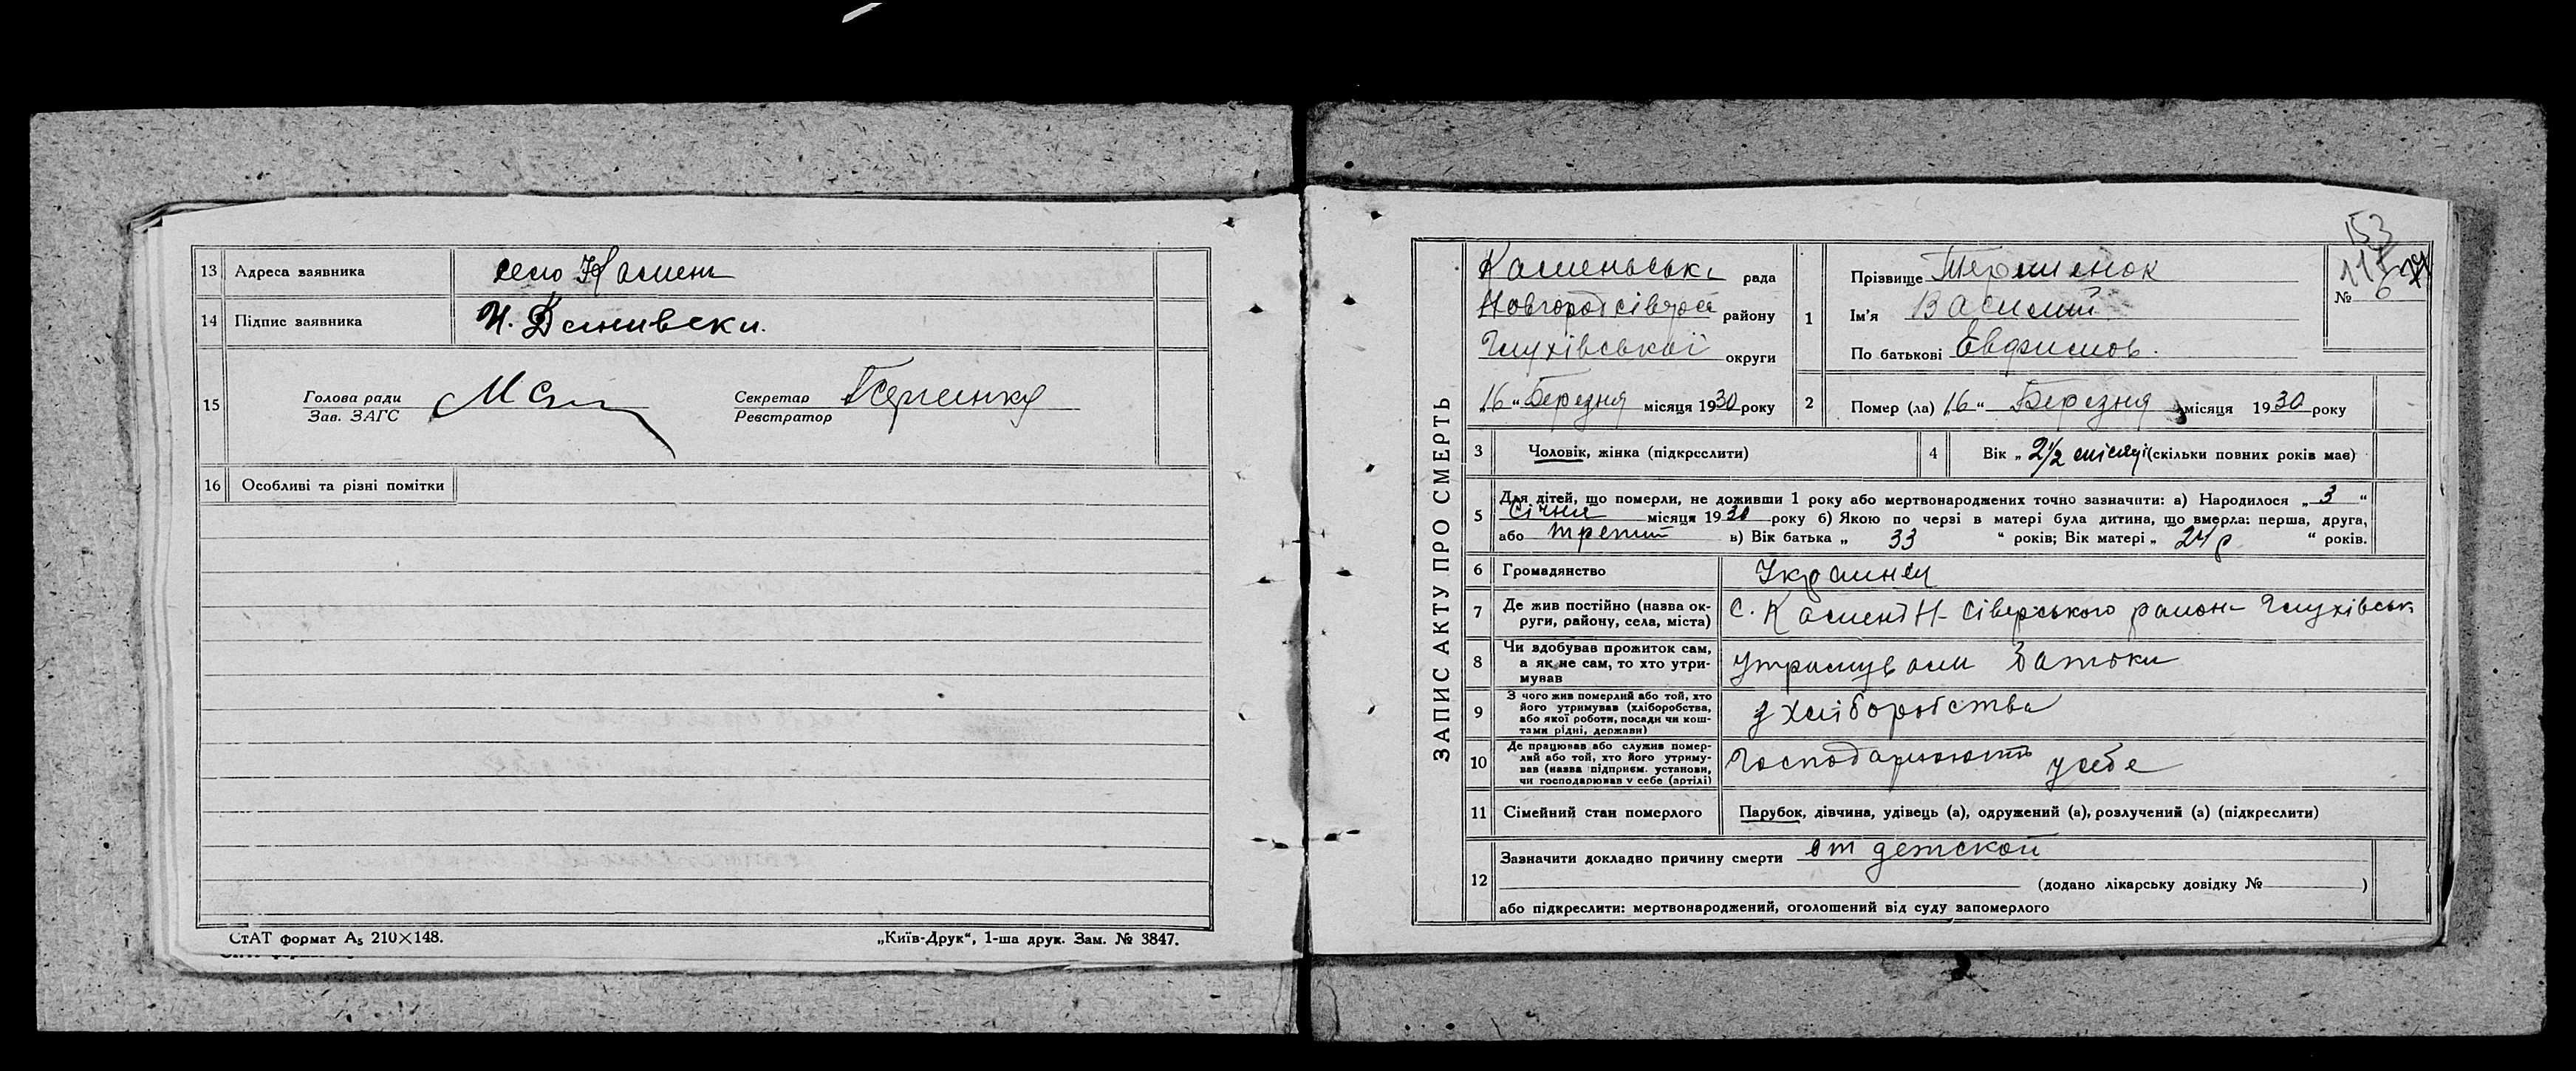 13 Адреса заявника село Камень
14 Підпис заявника
15 Голова ради
Зав. ЗАГС
Секретар
Реєстратор
16 Особливі та різні помітки
СтАТ формат А₅ 210×148.
„Київ-Друк“, 1-ша друк. Зам. № 3847.
ЗАПИС АКТУ ПРО СМЕРТЬ
Каменьськ. рада
району
Глухівської округи
„16“ Березня місяця 1930 року
1 Прізвище
Ім’я Василий
По батькові
153
№ 6
2 Помер (ла) „16“ Березня місяця 1930 року
3 Чоловік, жінка (підкреслити)
4 Вік „2½ місяці (скільки повних років має)
5 Для дітей, що померли, не доживши 1 року або мертвонароджених точно зазначити: а) Народилося „3“
Січня місяця 1930 року б) Якою по черзі в матері була дитина, що вмерла: перша, друга,
або третий в) Вік батька „ 33 “ років; Вік матері „ 24 р “ років.
6 Громадянство
7 Де жив постійно (назва ок-
руги, району, села, міста)
с. Камень Н-Сіверського район- Глухівськ.
8 Чи здобував прожиток сам,
а як не сам, то хто утри-
мував
утримували батьки
9 З чого жив померлий або той, хто
його утримував (хліборобства,
або якої роботи, посади чи кош-
тами рідні, держави)
з Хліборобства
10 Де працював або служив помер-
лий або той, хто його утриму-
вав (назва підприєм. установи,
чи господарював у себе (артілі)
Господарюють у себе
11 Сімейний стан померлого Парубок, дівчина, удівець (а), одружений (а), розлучений (а) (підкреслити)
12 Зазначити докладно причину смерти от детской
(додано лікарську довідку № )
або підкреслити: мертвонароджений, оголошений від суду запомерлого